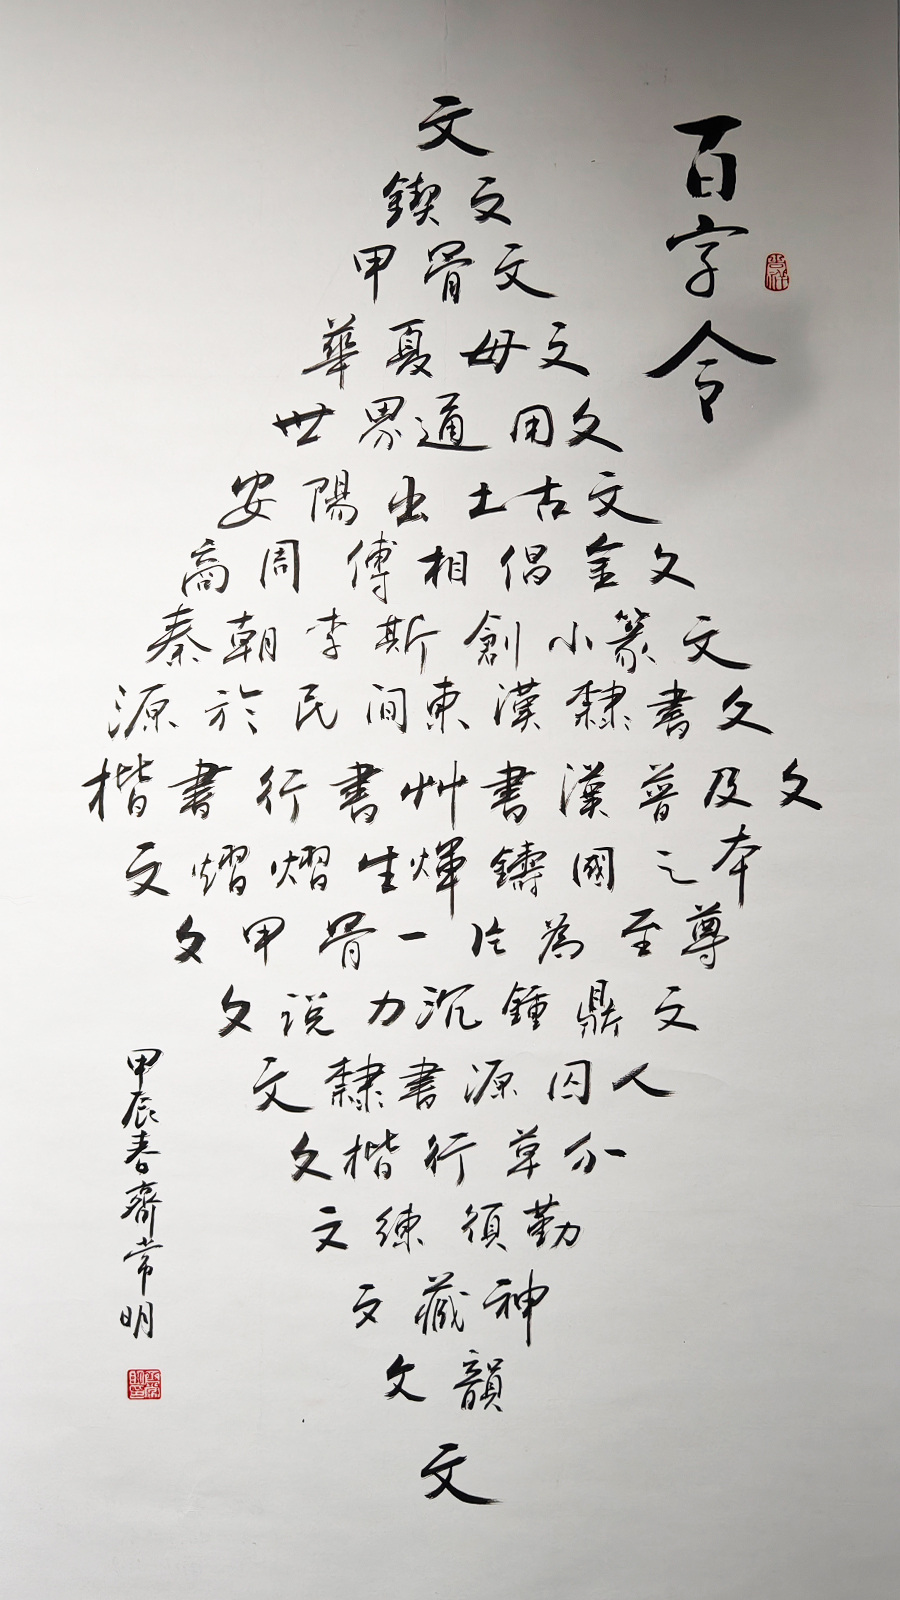 百字令
文
鍥文
甲骨文
華夏母文
世界通用文
安陽出土古文
商周傳相倡金文
秦朝李斯創小篆文
源於民間東漢隸書文
楷書行書艸書漢普及文
文熠熠生煇鑄國之本
文甲骨一片為至尊
文説力沉鍾鼎文
文隸書源囚人
文楷行草分
文練須勤
文藏神
文韻
文
甲辰春齊常明